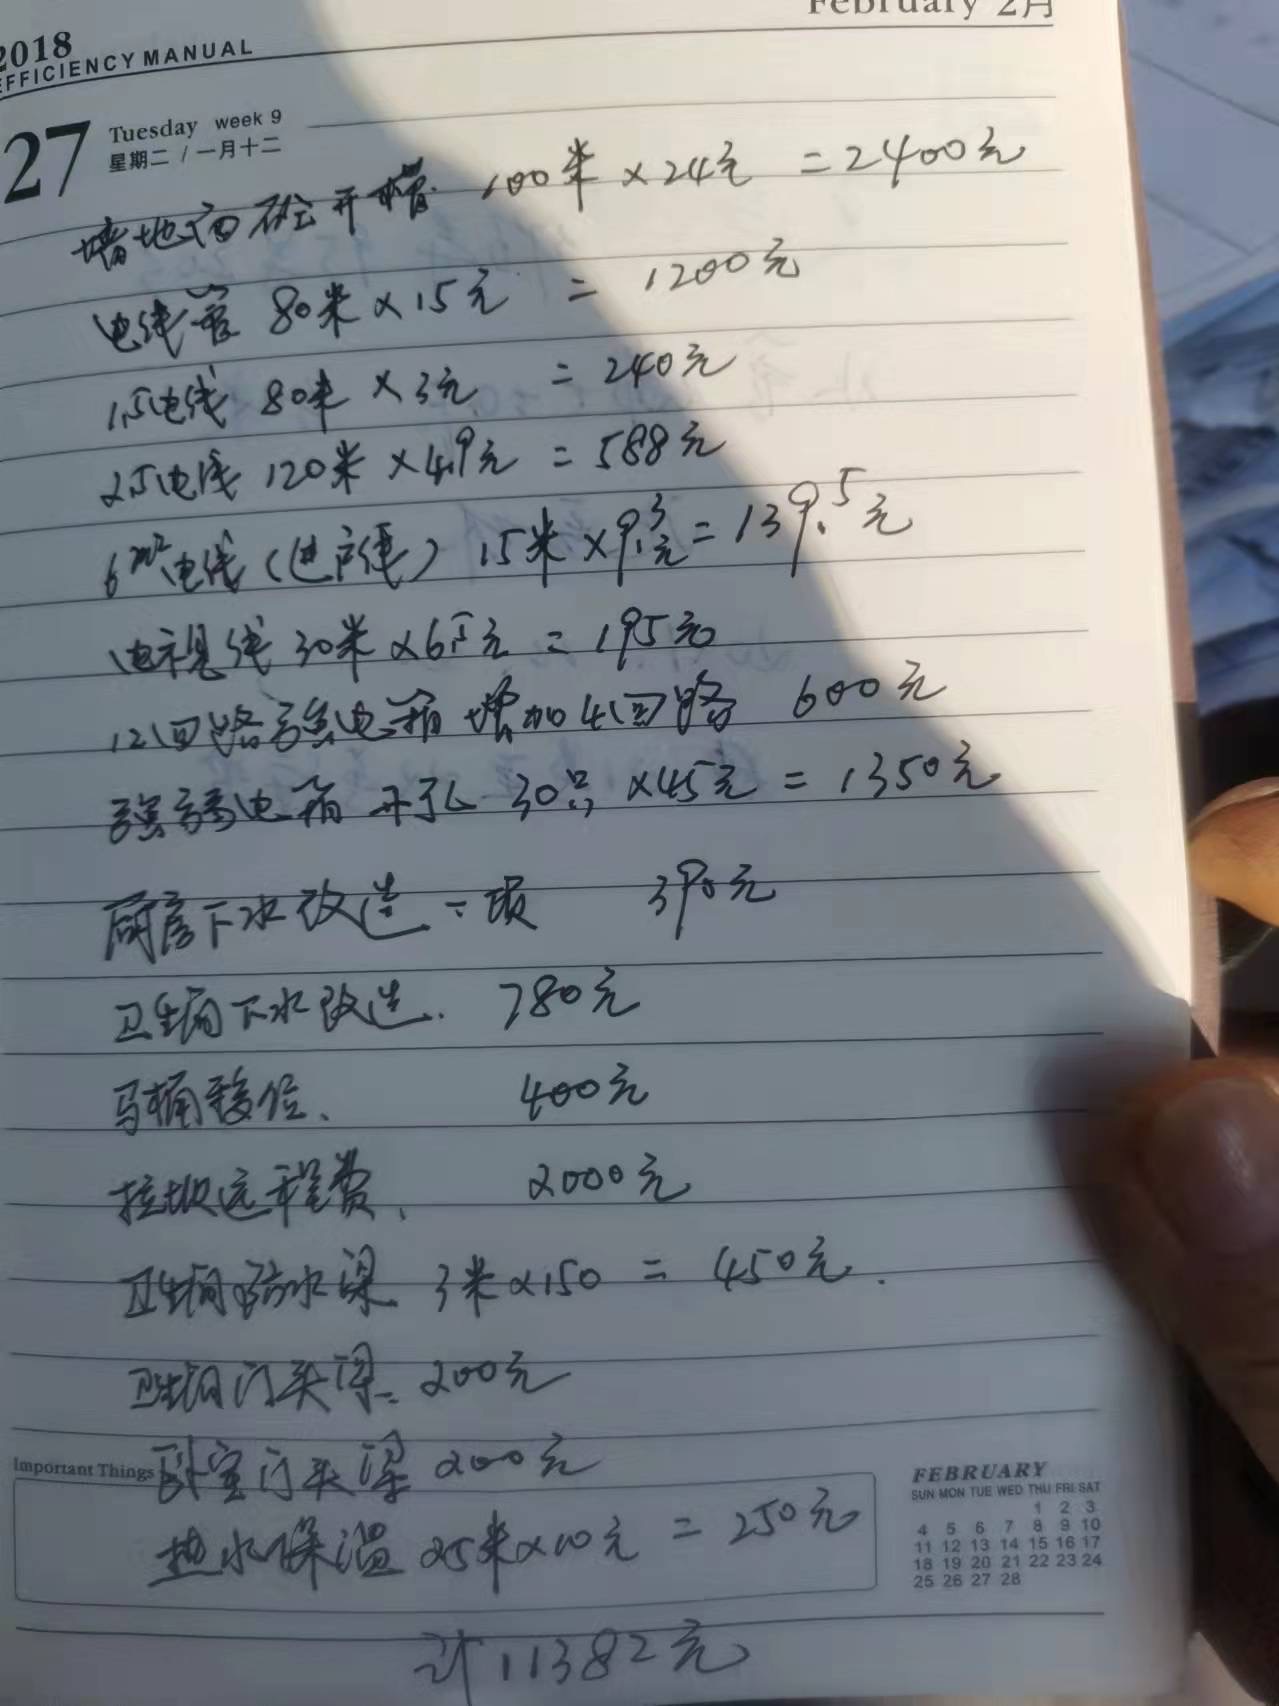 February 2月
2018
EFFICIENCY MANUAL
27
Tuesday week 9
星期二 / 一月十二
墙地面砼开槽 100米×24元=2400元
电线管 80米×15元 = 1200元
1.5电线 80米×3元 = 240元
2.5电线 120米×4.9元 = 588元
6m²电线(进户线) 15米×9.3元=139.5元
电视线 30米×6.5元 = 195元
12回路强电箱增加4回路 600元
强弱电箱开孔 30只×45元 = 1350元
厨房下水改造一项 390元
卫生间下水改造. 780元
马桶移位、 400元
垃圾远程费、 2000元
卫生间防水梁 3米×150 = 450元.
卫生间门头梁 200元
Important Things
卧室门头梁 200元
热水保温 25米×10元 = 250元
计11382元
FEBRUARY
SUN MON TUE WED THU FRI SAT
1 2 3
4 5 6 7 8 9 10
11 12 13 14 15 16 17
18 19 20 21 22 23 24
25 26 27 28